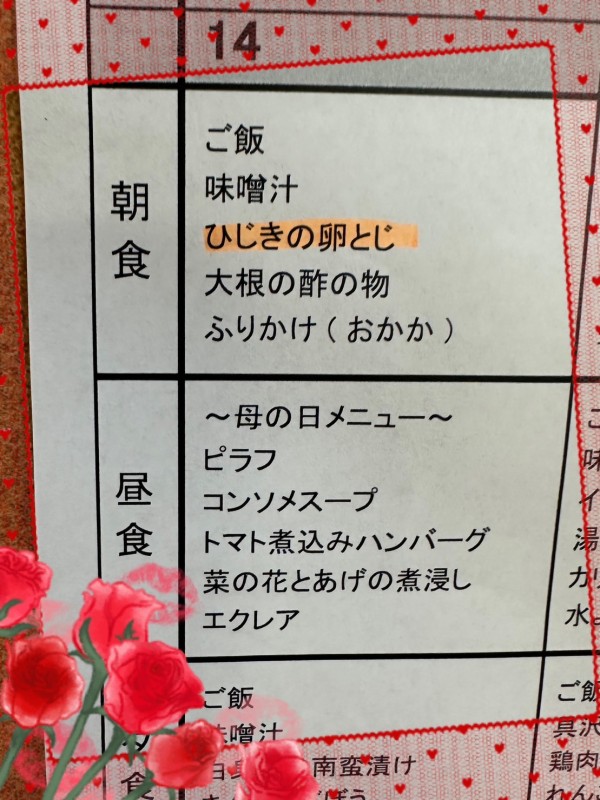 14
朝食
ご飯
味噌汁
ひじきの卵とじ
大根の酢の物
ふりかけ(おかか)
昼食
～母の日メニュー～
ピラフ
コンソメスープ
トマト煮込みハンバーグ
菜の花とあげの煮浸し
エクレア
食
ご飯
味噌汁
南蛮漬け
ご飯
具沢
鶏肉